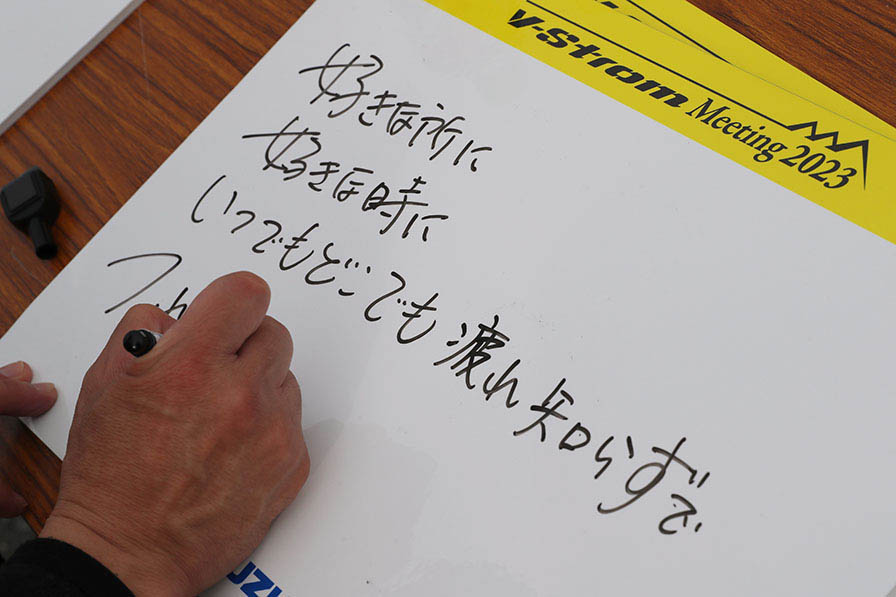 V-Strom Meeting 2023
好きな所に
好きな時に
いつでもどこでも疲れ知らずで